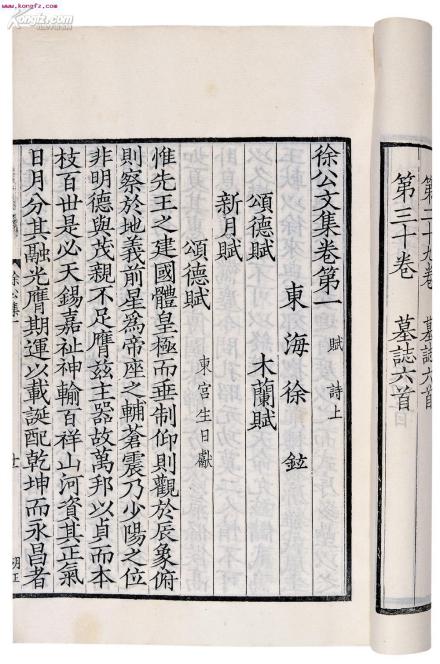 www.kongfz.com
第二十九卷 墓誌六首
第三十卷 墓誌六首
徐公文集卷第一 賦 詩上
東海徐鉉
頌德賦 木蘭賦
新月賦
頌德賦 東宮生日獻
惟先王之建國體皇極而垂制仰則觀於辰象俯
則察於地義前星爲帝座之輔蒼震乃少陽之位
非明德與茂親不足膺茲主器故萬邦以貞而本
枝百世是必天錫嘉祉神輸百祥山河資其正氣
日月分其融光膺期運以載誕配乾坤而永昌者
徐公集一